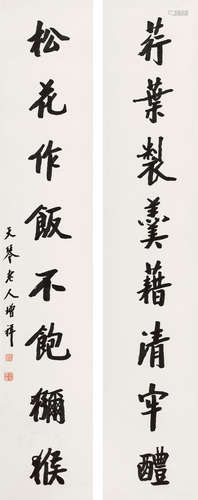 荇葉製羹藉清牢醴
松花作飯不飽獼猴
天琴老人增祥